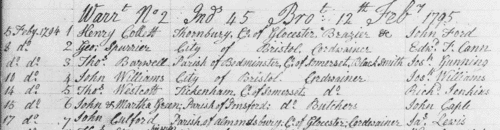 Warrt. No 2 Ind 45 Brot. 12th Feby 1795
5 Feby. 1794 1 Henry Collett Thornbury, Co. of Glocester Brazier & John Ford
8 do 2 Geo: Spurrier City of Bristol Cordwainer Edwd. T. Cann
do do 3 Thos. Barwell Parish of Bedminster, Co. of Somerset, Black Smith Jos: Gunning
10 do 4 John Williams City of Bristol Cordwainer Jos: Williams
14 do 5 Thos. Westcott Tickenham, Co. of Somerset, do Richd. Jenkins
16 do 6 John & Martha Green; Parish of Durford; do Butchers John Caple
17 do 7 John Culford Parish of Almondsbury; Co. of Glocester; Cordwainer Jas: Lewis